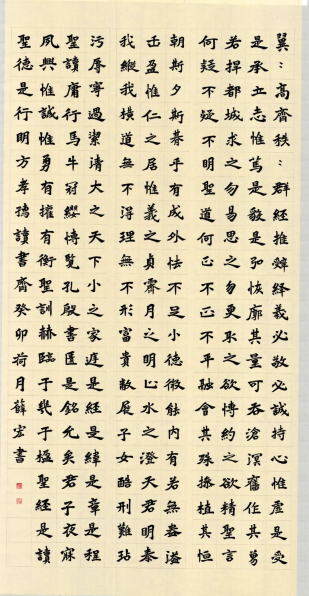 翼〻高齋秩〻群經推辭繹義必敬必誠持心惟虛是受
是承立志惟篤是敬是弘恢廓其量可吞滄溟奮作其勇
若捍都城求之勿易思之勿更取之欲博約之欲精聖言
何疑不疑不明聖道何正不正不平融會其殊操植其恒
朝斯夕斯暮乎有成外怯不足小德微能內有若無盎溢
缶盈惟仁之居惟義之貞霽月之明止水之澄天君明泰
我縱我橫道無不得理無不形富貴敝屣子女酷刑難玷
污辱寧過潔清大之天下小之家庭是經是緯是章是程
聖讀庸行馬牛冠纓博覽孔殷書匡是銘允矣君子夜寐
夙興惟誠惟勇有擁有衡聖訓赫臨于幾于楹聖經是讀
聖德是行明方孝孺讀書齋癸卯荷月薛宏書